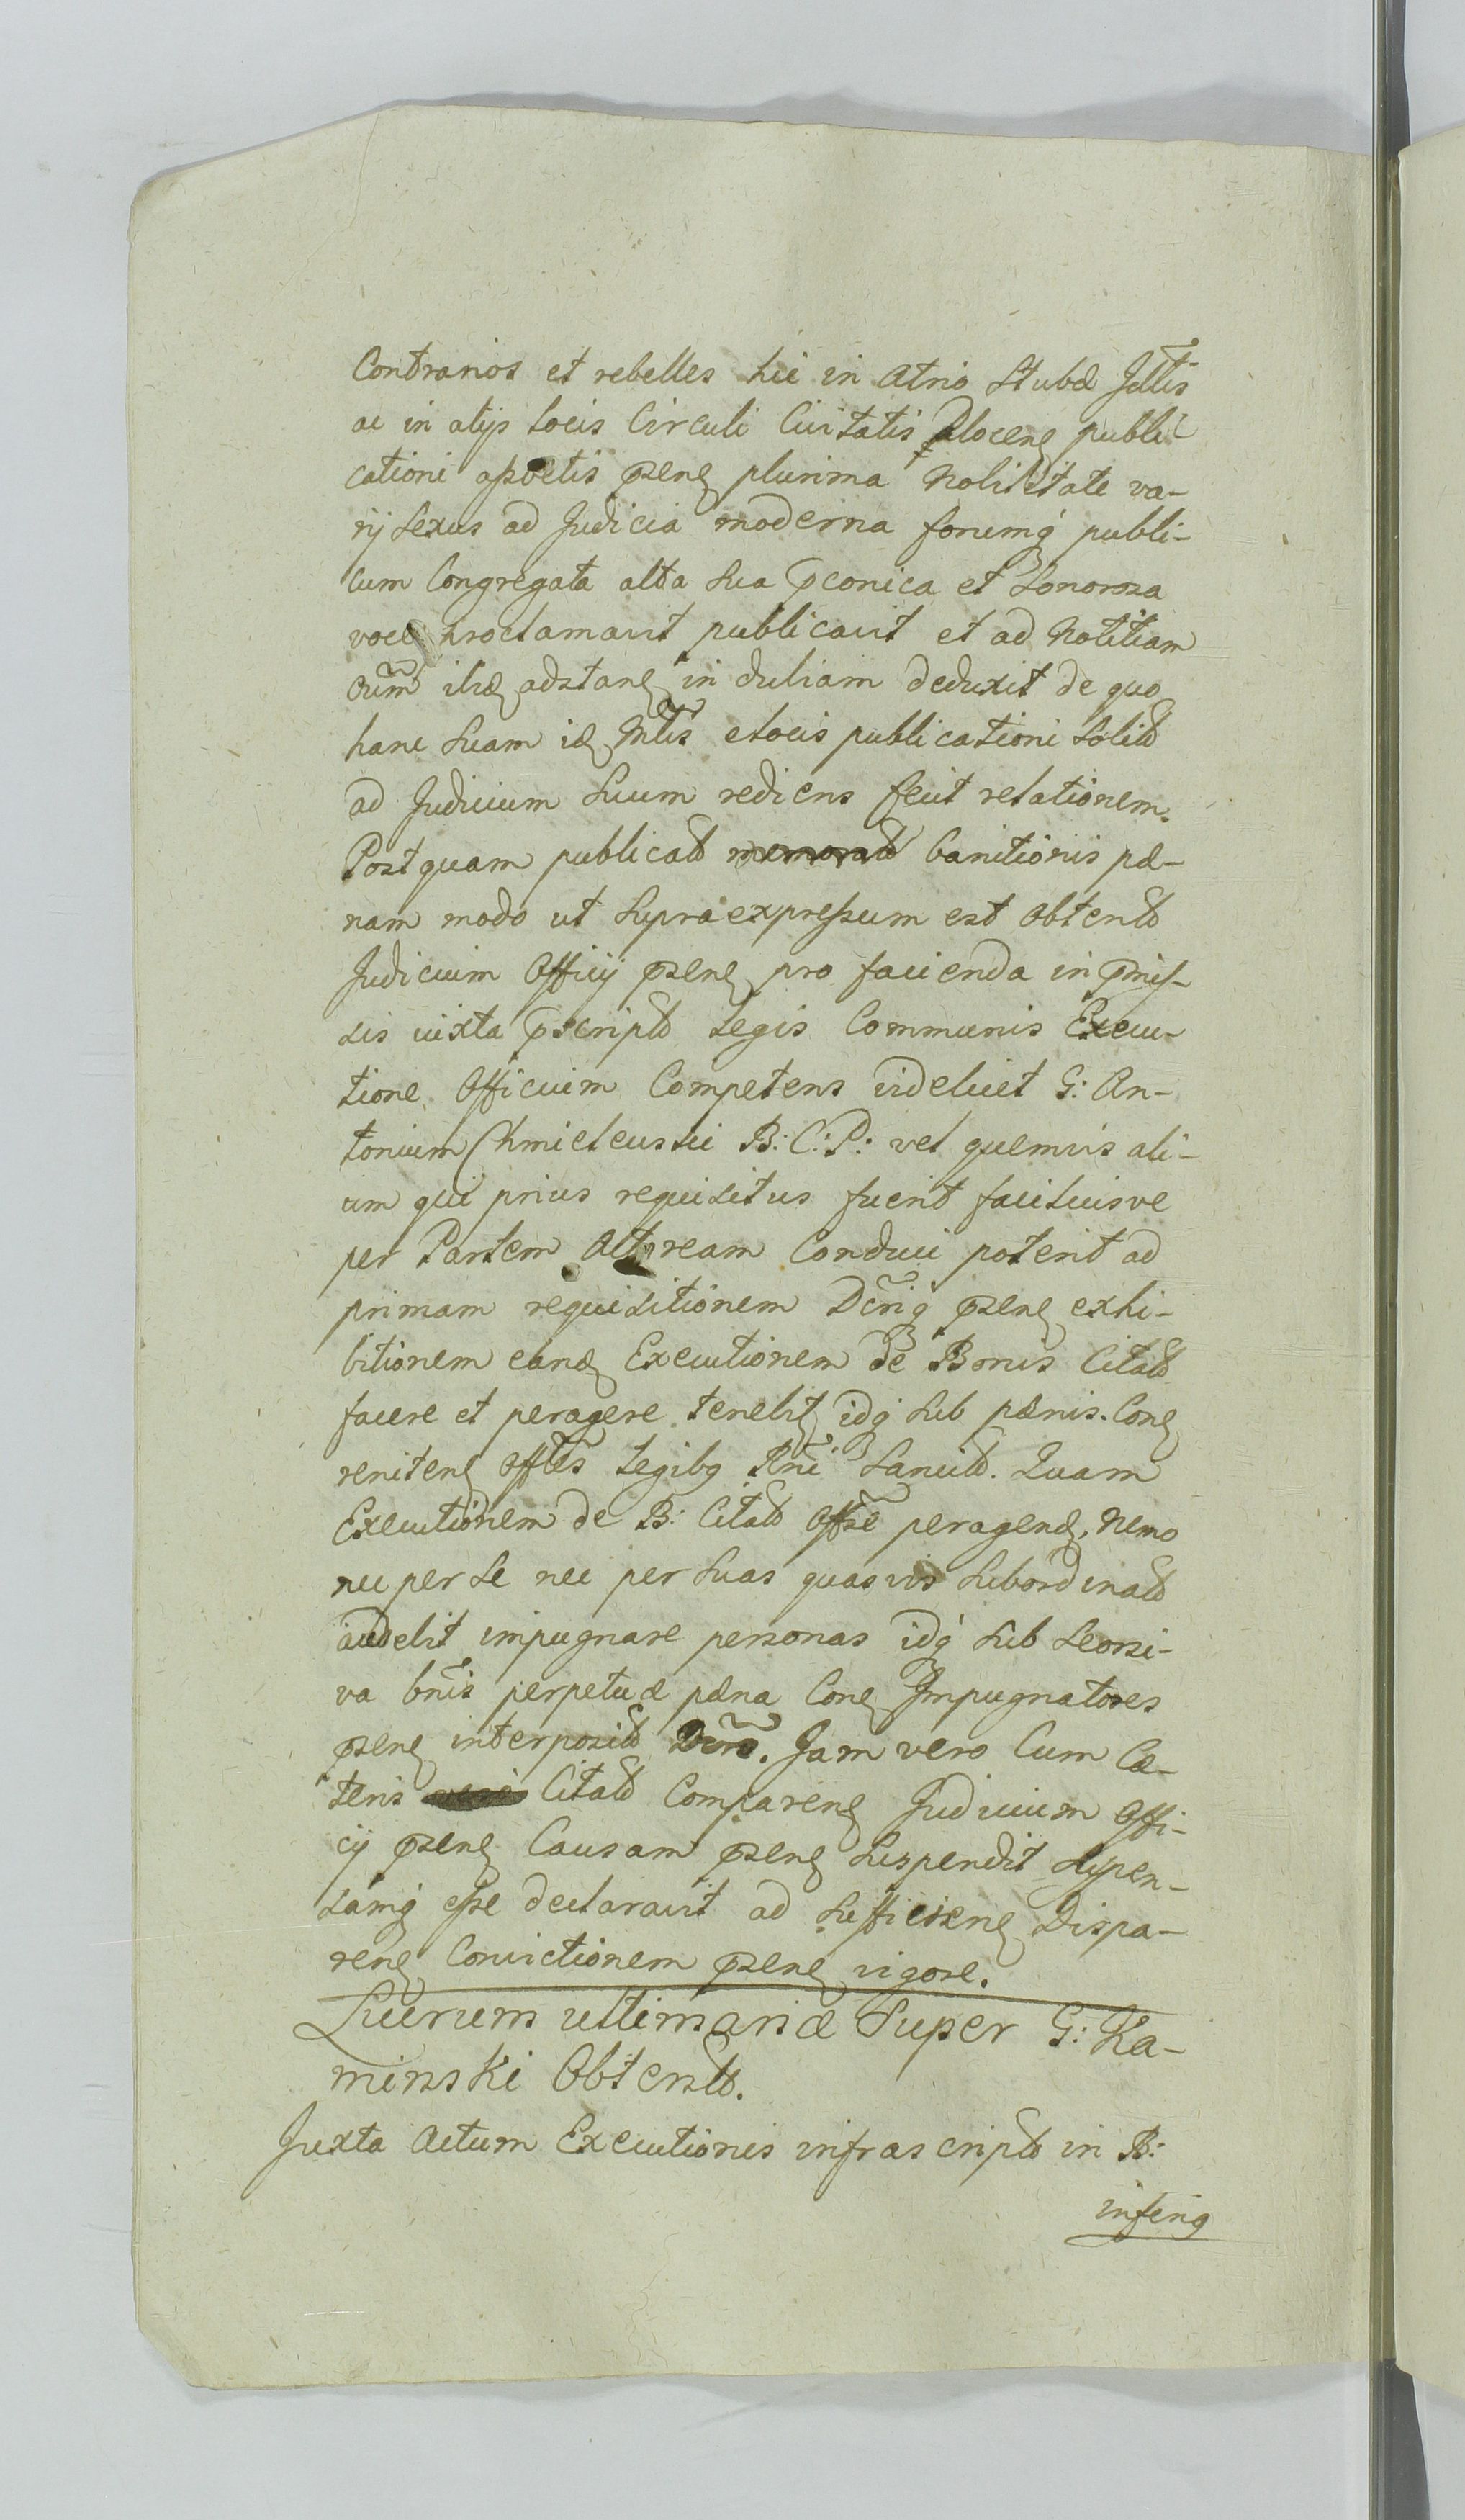 Contrarios et rebelles hic in Atrio Stubæ Jltis
ac in alijs Locis Circuli Civitatis Plocen publi-
cationi assvetis psen plurima Nobilitate va-
rij Sexus ad Judicia moderna forumq publi-
cum Congregata alta sua pconica et sonorosa
voce proclamavit publicavit et ad Notitiam
oum ibid adstan in dubiam deduxit de quo
hanc suam id Mlis e locis publicationi solit
ad Judicium suum rediens fecit relationem.
Postquam publicat banitionis pæ-
nam modo ut supra expressum est obtent
Judicium Officij psen pro facienda in pmis-
sis iuxta pscript Legis Communis Execu-
tione Officium Competens videlicet G: An-
tonium Chmieleuski B: C: P: vel quemvis ali-
um qui prius requisitus fuerit faciliusve
per Partem Actoream Conduci poterit ad
primam requisitionem Dcriq psen exhi-
bitionem eand Executionem de Bonis Citat
facere et peragere tenebit idq sub pænis. Con
reniten Offles Legibq Rni Sancit. Quam
Executionem de B: Citat Offse peragend, Nemo
nec per se nec per suas quasvis subordinat
audebit impugnare personas idq sub seorsi-
va bnis perpetuæ pæna Con Impugnatores
psen interposit Dcro. Jam vero Cum Cæ-
teris Citat Comparen Judicium Offi-
cij psen Causam psen suspendit suspen-
samq esse declaravit ad sufficien Dispa-
ren Convictionem psen vigore.
Lucrum ultimariæ Super G: Ka-
minski Obtent.
Juxta Actum Executionis infrascript in B:
inferiq